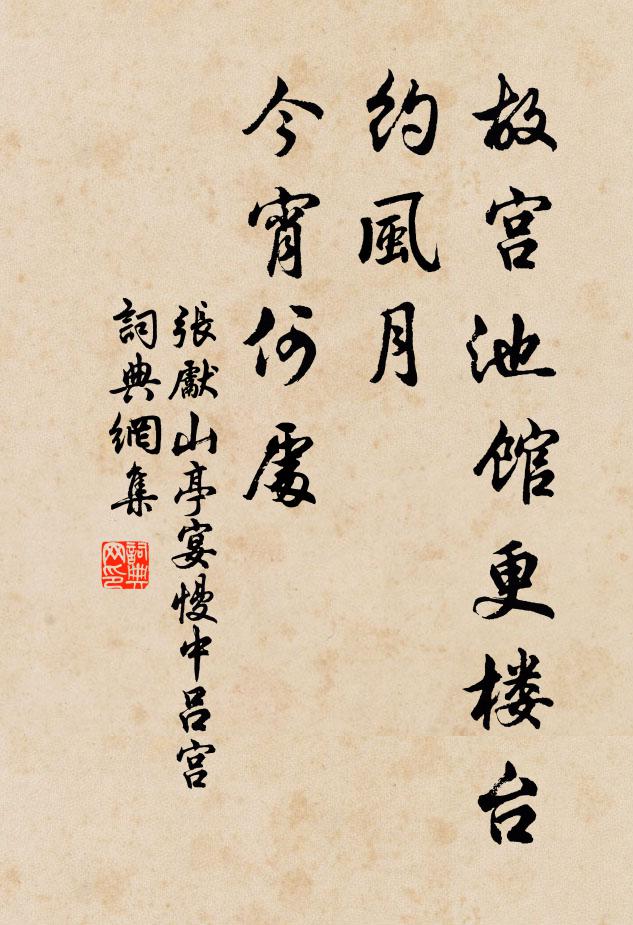 故宫池館更楼台
約風月
今宵何處
張獻山亭宴慢中吕宫
詞典網集
詞典网印